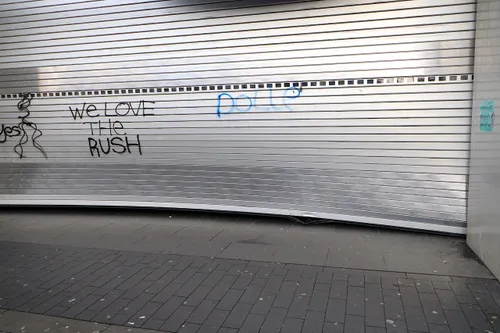 yes
WE LOVE
THE
RUSH
Dolle